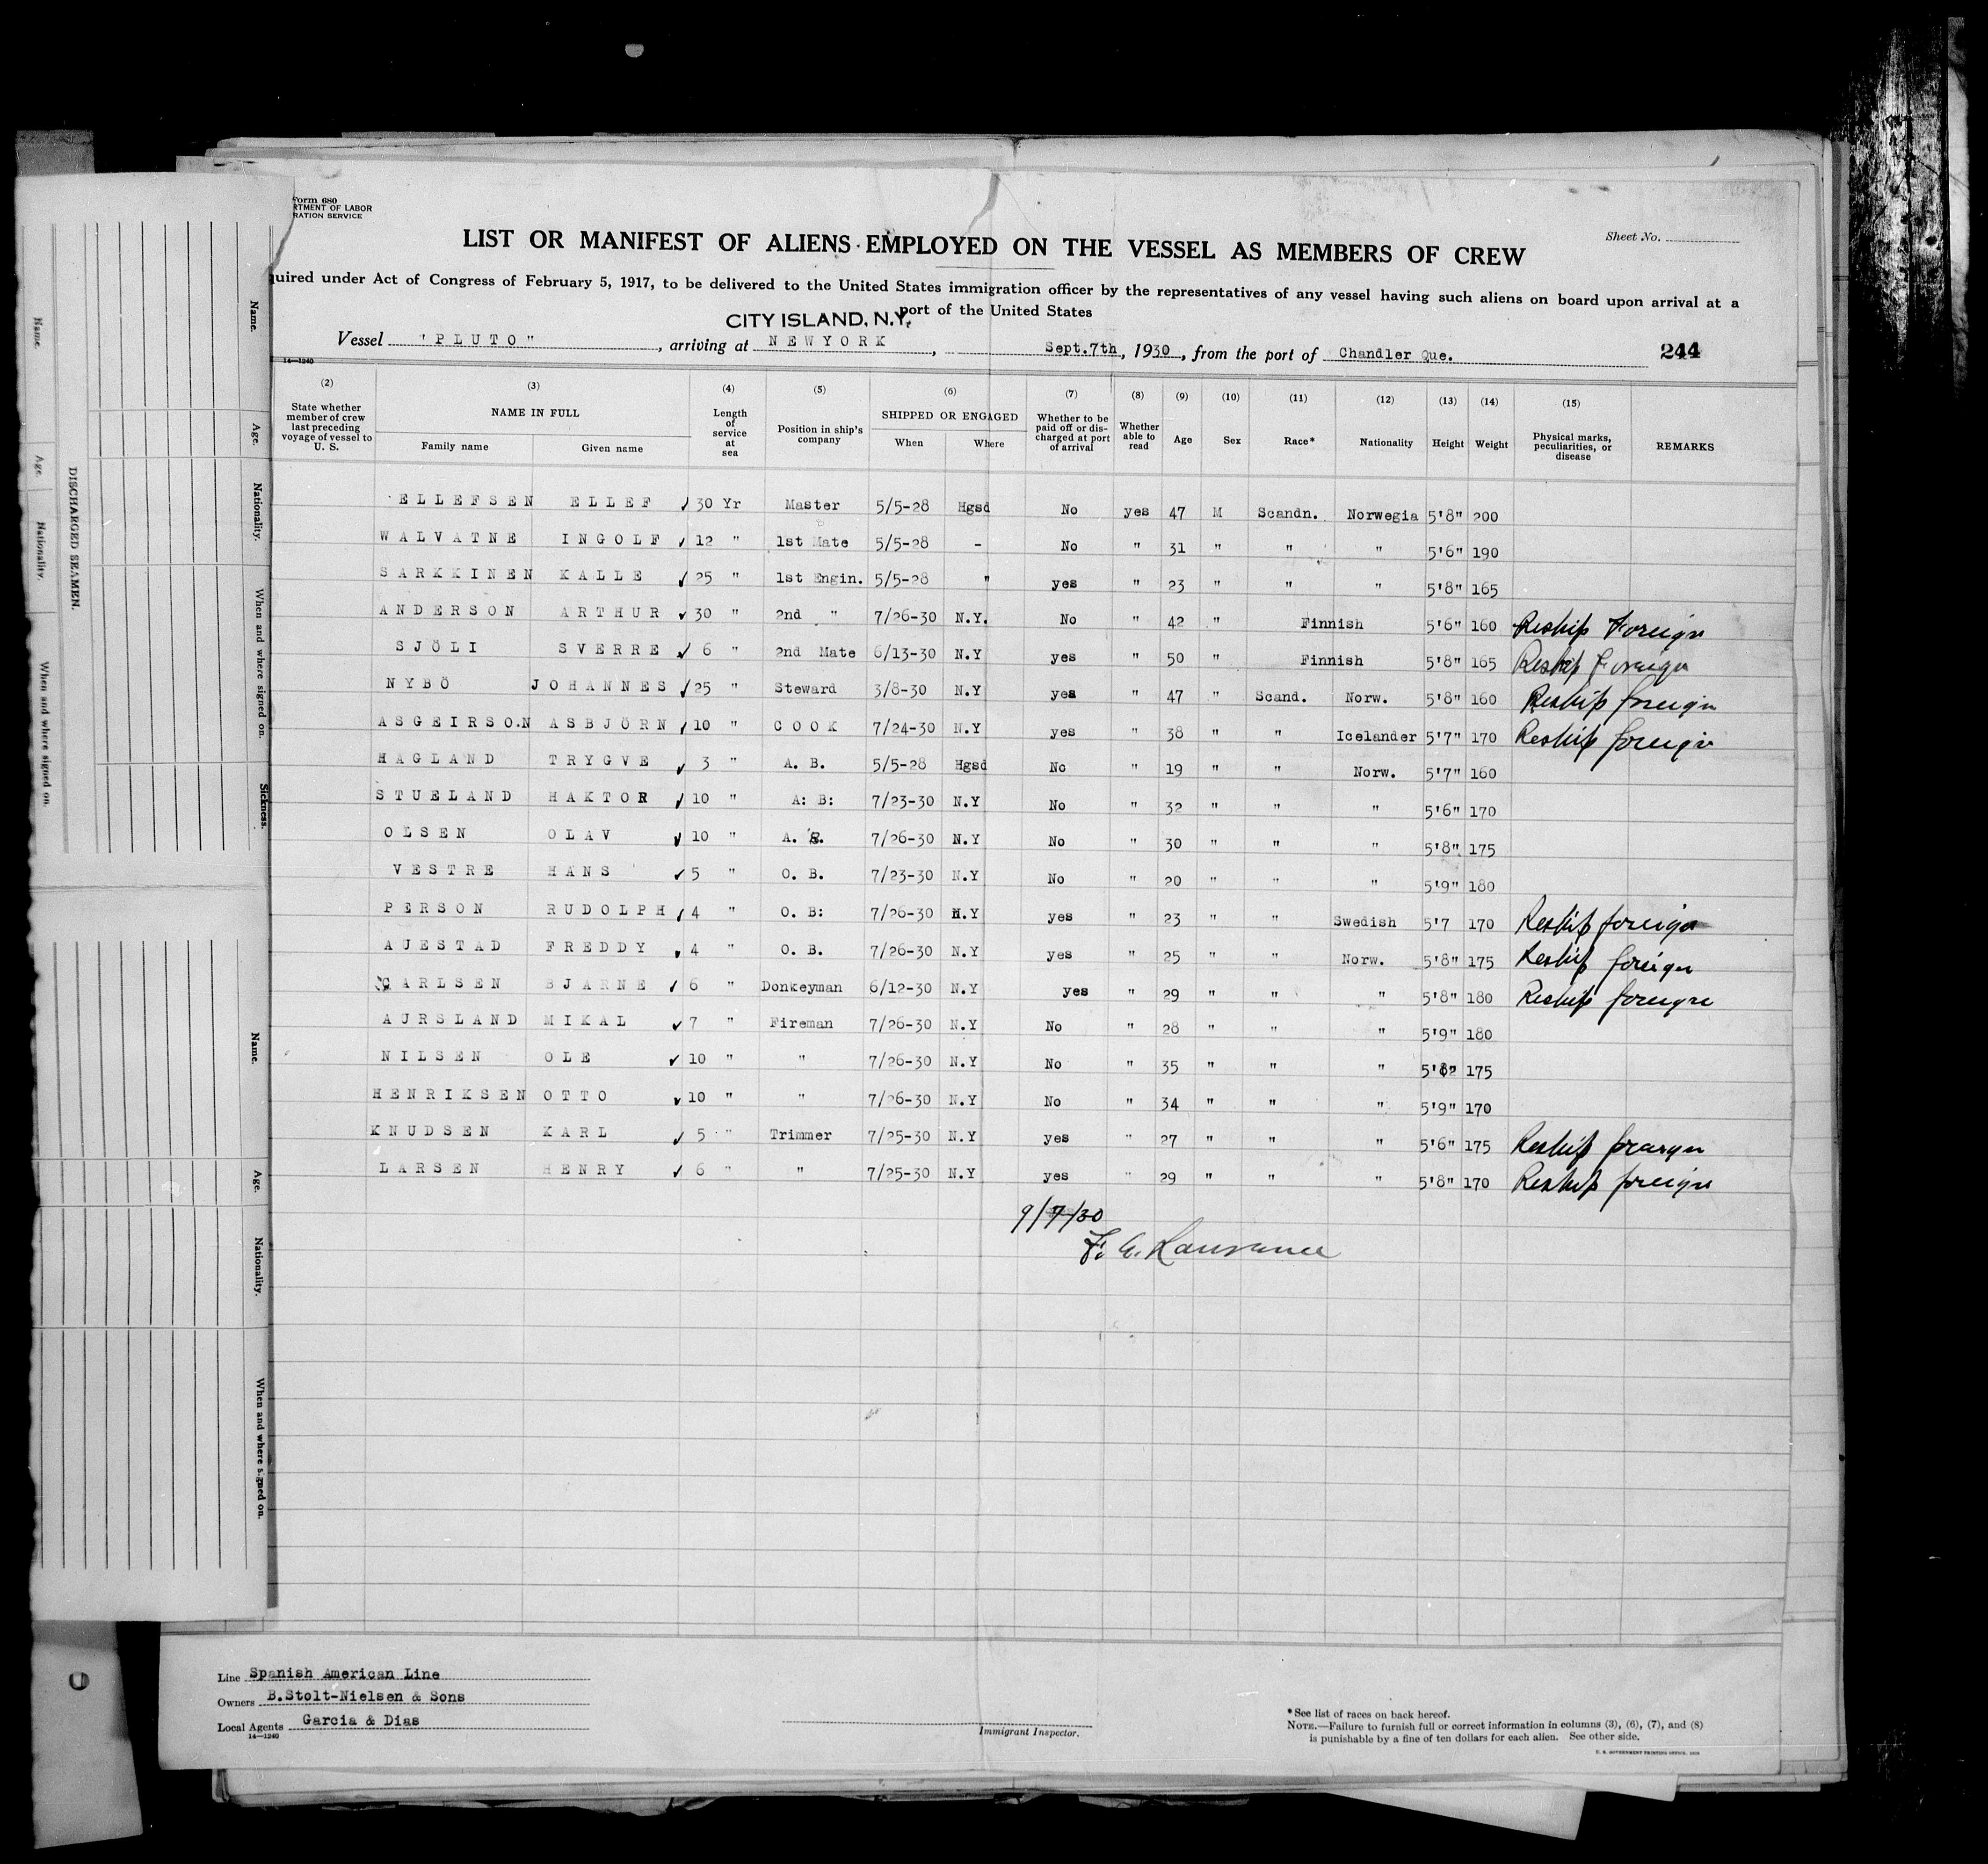 Form 680
RTMENT OF LABOR
RATION SERVICE
Sheet No.
LIST OR MANIFEST OF ALIENS EMPLOYED ON THE VESSEL AS MEMBERS OF CREW
quired under Act of Congress of February 5, 1917, to be delivered to the United States immigration officer by the representatives of any vessel having such aliens on board upon arrival at a
port of the United States
CITY ISLAND, N.Y.
Vessel "PLUTO", arriving at NEWYORK, Sept.7th, 1930, from the port of Chandler Que. 244
14—1240
(2) (3) (4) (5) (6) (7) (8) (9) (10) (11) (12) (13) (14) (15)
State whether member of crew last preceding voyage of vessel to U. S. NAME IN FULL Family name Given name Length of service at sea Position in ship's company SHIPPED OR ENGAGED When Where Whether to be paid off or discharged at port of arrival Whether able to read Age Sex Race* Nationality Height Weight Physical marks, peculiarities, or disease REMARKS
ELLEFSEN ELLEF ✓ 30 Yr Master 5/5-28 Hgsd No yes 47 M Scandn. Norwegia 5'8" 200
WALVATNE INGOLF ✓ 12 " 1st Mate 5/5-28 - No " 31 " " " 5'6" 190
SARKKINEN KALLE ✓ 25 " 1st Engin. 5/5-28 " yes " 23 " " " 5'8" 165
ANDERSON ARTHUR ✓ 30 " 2nd " 7/26-30 N.Y. No " 42 " Finnish 5'6" 160 Reship Foreign
SJÖLI SVERRE ✓ 6 " 2nd Mate 6/13-30 N.Y yes " 50 " Finnish 5'8" 165 Reship Foreign
NYBÖ JOHANNES ✓ 25 " Steward 3/8-30 N.Y yes " 47 " Scand. Norw. 5'8" 160 Reship foreign
ASGEIRSON ASBJÖRN ✓ 10 " COOK 7/24-30 N.Y yes " 38 " " Icelander 5'7" 170 Reship foreign
HAGLAND TRYGVE ✓ 3 " A. B. 5/5-28 Hgsd No " 19 " " Norw. 5'7" 160
STUELAND HAKTOR ✓ 10 " A: B: 7/23-30 N.Y No " 32 " " " 5'6" 170
OLSEN OLAV ✓ 10 " A. B. 7/26-30 N.Y No " 30 " " " 5'8" 175
VESTRE HANS ✓ 5 " O. B. 7/23-30 N.Y No " 20 " " " 5'9" 180
PERSON RUDOLPH ✓ 4 " O. B: 7/26-30 N.Y yes " 23 " " Swedish 5'7 170 Reship foreign
AUESTAD FREDDY ✓ 4 " O. B. 7/26-30 N.Y yes " 25 " " Norw. 5'8" 175 Reship foreign
CARLSEN BJARNE ✓ 6 " Donkeyman 6/12-30 N.Y yes " 29 " " " 5'8" 180 Reship foreign
AURSLAND MIKAL ✓ 7 " Fireman 7/26-30 N.Y No " 28 " " " 5'9" 180
NILSEN OLE ✓ 10 " " 7/26-30 N.Y No " 35 " " " 175
HENRIKSEN OTTO ✓ 10 " " 7/26-30 N.Y No " 34 " " " 5'9" 170
KNUDSEN KARL ✓ 5 " Trimmer 7/25-30 N.Y yes " 27 " " " 5'6" 175 Reship foreign
LARSEN HENRY ✓ 6 " " 7/25-30 N.Y yes " 29 " " " 5'8" 170 Reship foreign
9/7/30
Line Spanish American Line
Owners B.Stolt-Nielsen & Sons
Local Agents Garcia & Dias
14—1240
Immigrant Inspector.
*See list of races on back hereof.
NOTE.—Failure to furnish full or correct information in columns (3), (6), (7), and (8)
is punishable by a fine of ten dollars for each alien. See other side.
U. S. GOVERNMENT PRINTING OFFICE
DISCHARGED SEAMEN.
Name. Age. Nationality. When and where signed on.
Name. Age. Nationality. When and where signed on. Sickness.
Name. Age. Nationality. When and where signed on.